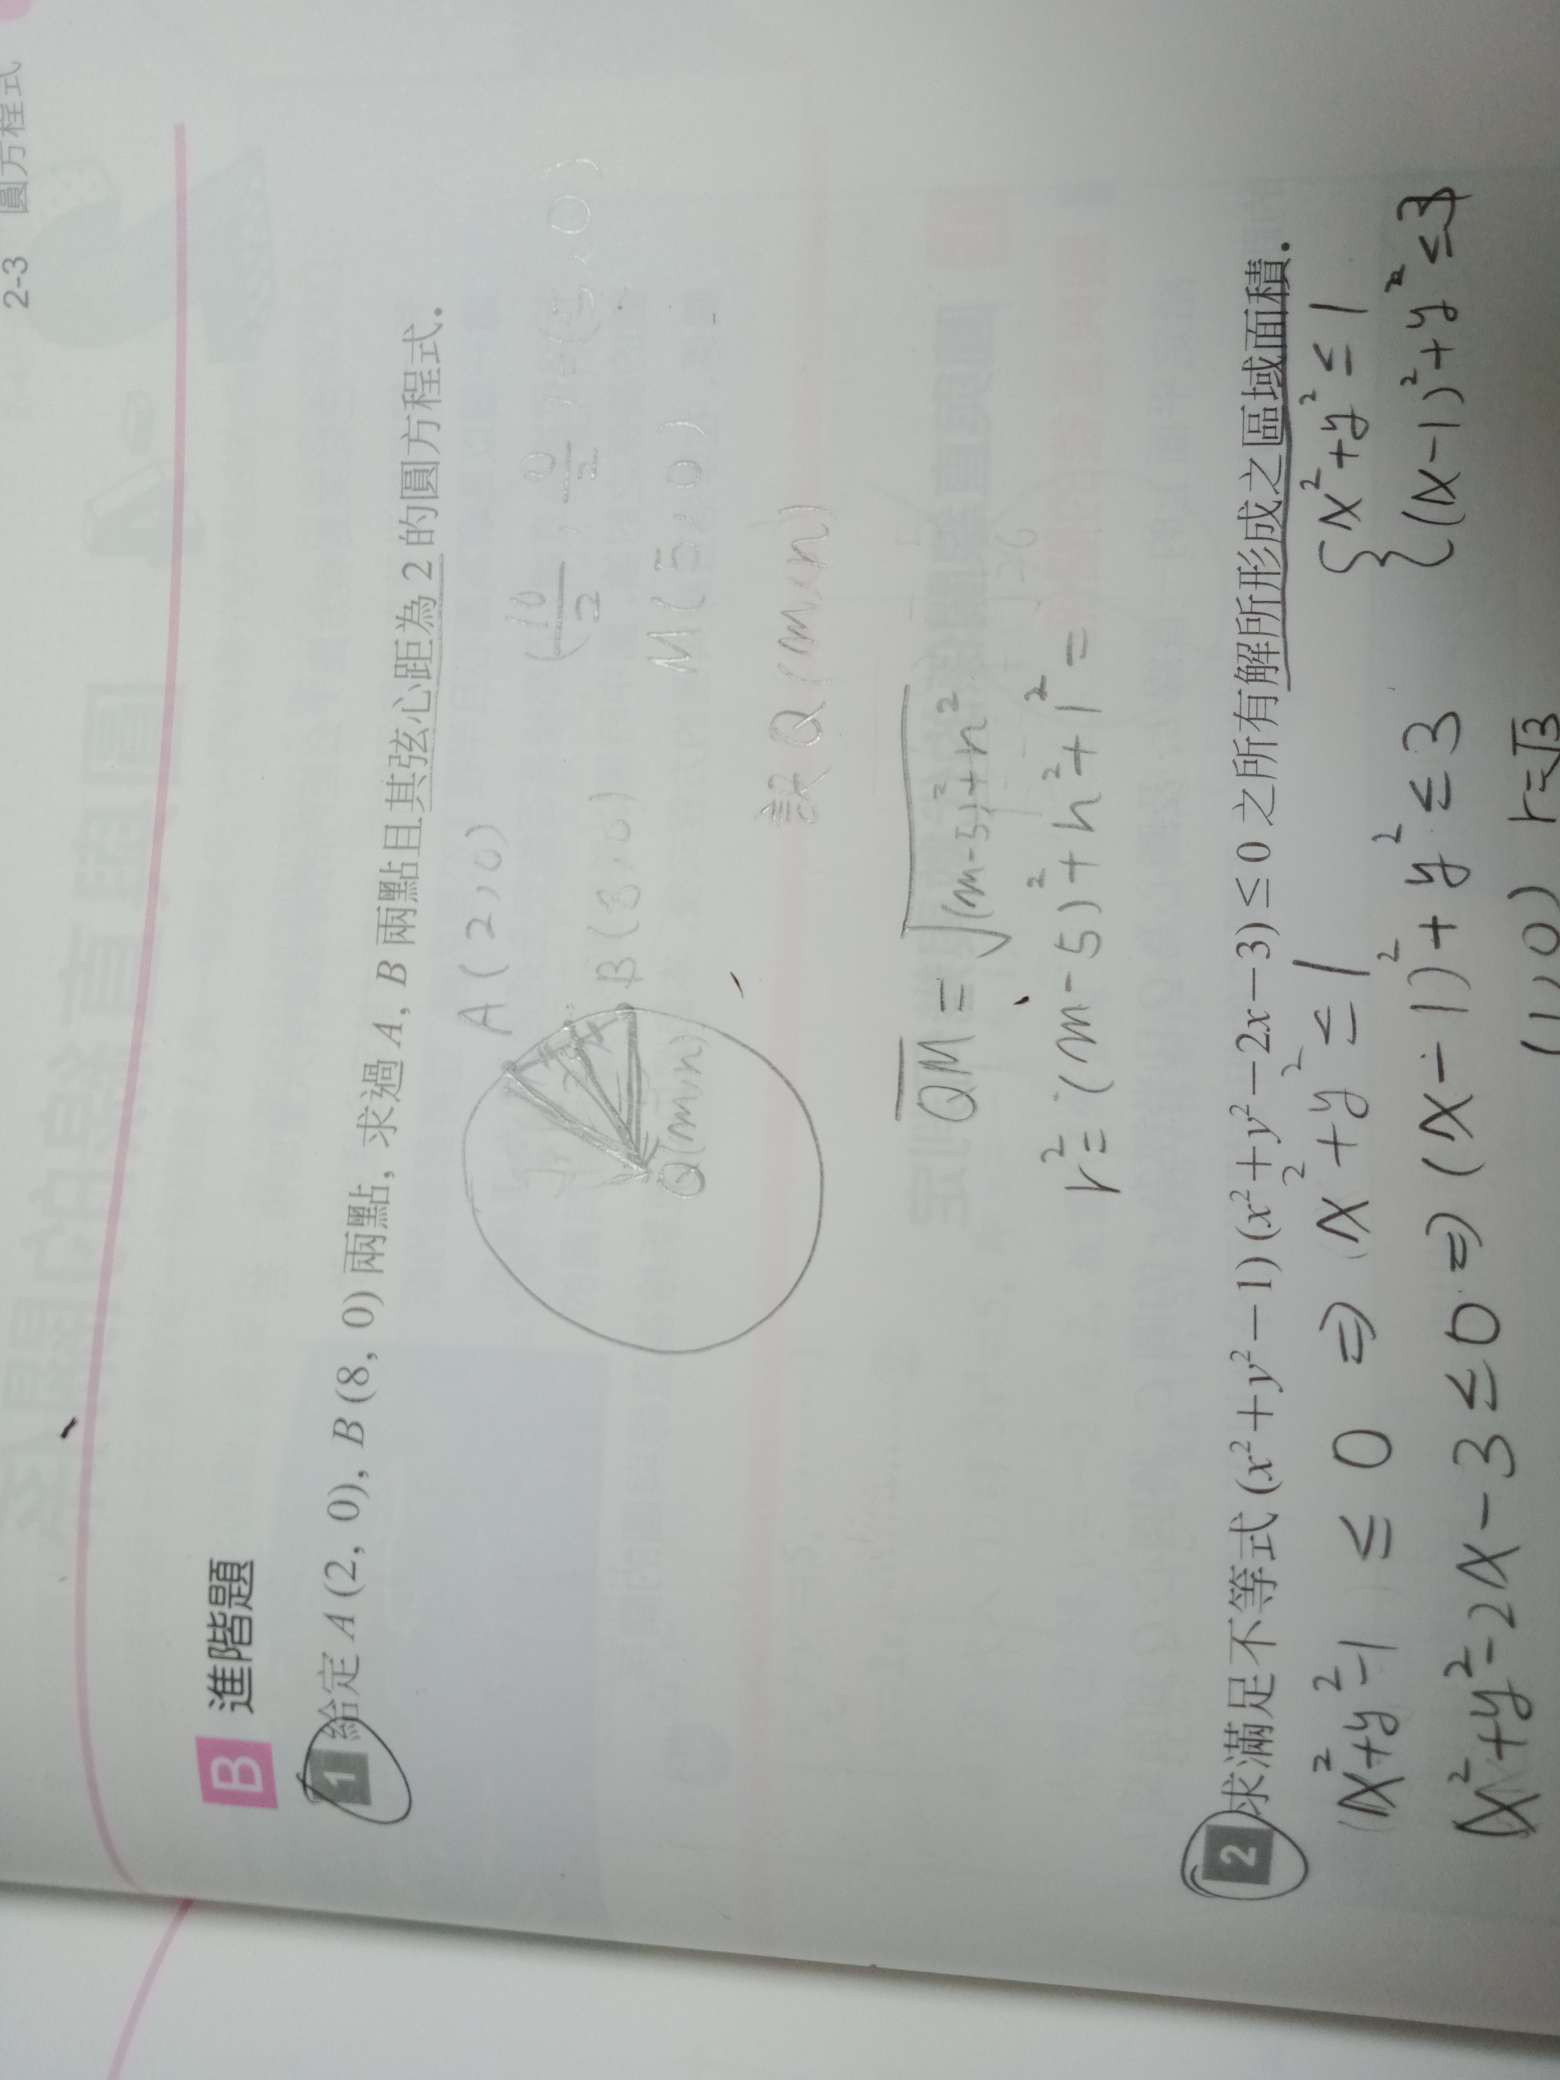 2-3 圓方程式
B 進階題
1 給定 A (2, 0), B (8, 0) 兩點, 求過 A, B 兩點且其弦心距為 2 的圓方程式.
A(2,0)
(10/2, 0/2) (5,0)
B(8,0) M(5,0)
Q(m,n)
設Q(m,n)
QM = √(m-5)²+n²
r² = (m-5)²+n²+1² =
2 求滿足不等式 (x²+y²-1) (x²+y²-2x-3) ≤ 0 之所有解所形成之區域面積.
(x²+y²-1) ≤ 0 ⇒ x²+y² ≤ 1 { x²+y² ≤ 1
(x²+y²-2x-3 ≤ 0 ⇒ (x-1)²+y² ≤ 3 { (x-1)²+y² ≤ 3
(1,0) r=√3